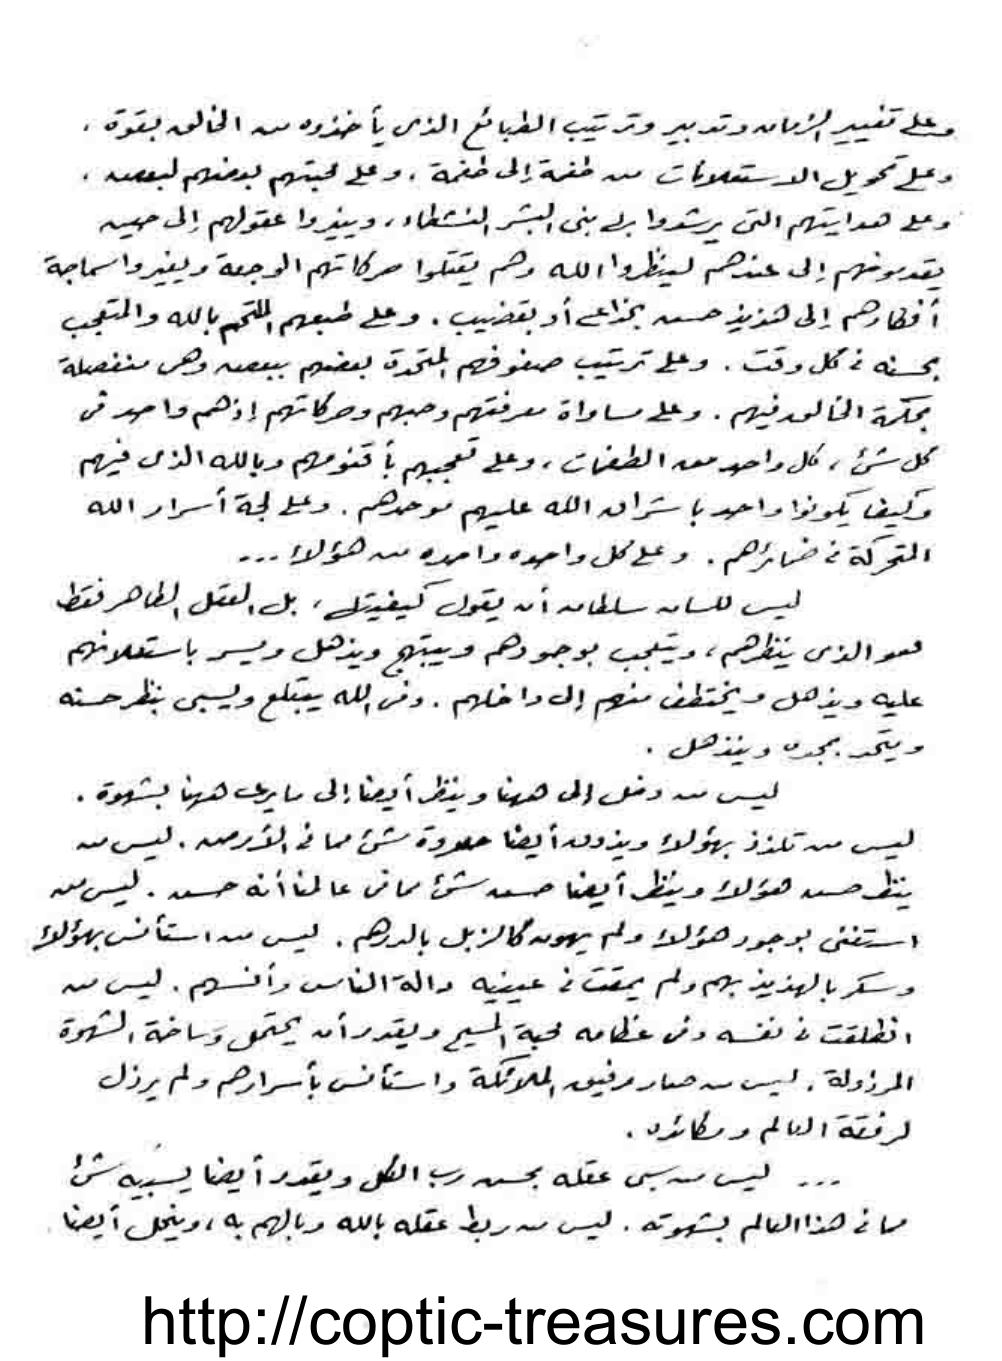 وعلى تغيير الزمان وتدبير وترتيب الطبائع الذى يأخذوه من الخالق بقوة .
وعلى تحويل الاستعلانات من طغمة إلى طغمة . وعلى محبتهم بعضهم لبعض .
وعلى هدايتهم التى يرشدوا بها بنى البشر النشطاء ، ويغيروا عقولهم إلى حين
يقدمونهم إلى عندهم لينظروا الله وهم يقتلوا حركاتهم الوجعة ويغيروا سماجة
أفكارهم إلى هذيذ حسن بخداع أو بقضيب . وعلى طبعهم الملتحم بالله والمتعجب
بحسنه فى كل وقت . وعلى ترتيب صفوفهم المتحدة بعضهم ببعض وهى منفصلة
بحكمة الخالق فيهم . وعلى مساواة معرفتهم وحبهم وحركاتهم إذ هم واحد فى
كل شئ ، كل واحد من الطغمات ، وعلى تعجبهم بأقنومهم وبالله الذى فيهم
وكيف يكونوا واحد باشراق الله عليهم موحدهم . وعلى لجة أسرار الله
المتحركة فى ضمائرهم . وعلى كل واحده واحده من هؤلاء ...
ليس للسان سلطان أن يقول كيفيتها ، بل العقل الطاهر فقط
هو الذى ينظرهم ، ويتعجب بوجودهم ويبتهج ويذهل ويسر باستعلانهم
عليه ويذهل ويختطف منهم إلى داخلهم . وفى الله يبتلع ويسبى بنظر حسنه
ويتحد بمجده وينذهل .
ليس من دخل إلى ههنا وينظر أيضا إلى ما يرى ههنا بشهوة .
ليس من تلذذ بهؤلاء ويذوق أيضا حلاوة شئ مما فى الأرض . ليس من
ينظر حسن هؤلاء وينظر أيضا حسن شئ مما فى عالمنا أنه حسن . ليس من
استغنى بوجود هؤلاء ولم يهون كالزبل بالدرهم . ليس من استأنس بهؤلاء
وسكر بالهذيذ بهم ولم يمقت فى عينيه دالة الناس وأنسهم . ليس من
انطلقت فى نفسه وفى عظامه محبة المسيح ويقدر أن يحتمل وساخة الشهوة
المرذولة . ليس من صار رفيق الملائكة واستأنس بأسرارهم ولم يرذل
لرفقة العالم ومكائده .
... ليس من سبى عقله بحسن رب الكل ويقدر أيضا يسبيه شئ
مما فى هذا العالم بشهوته . ليس من ربط عقله بالله وبالهم به ، وينحل أيضا
http://coptic-treasures.com